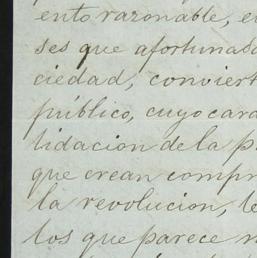 ento razonable, e
ses que afortunada
ciedad, conviert
público, cuyo cara
lidacion de la p
que crean compr
la revolucion, le
los que parece n